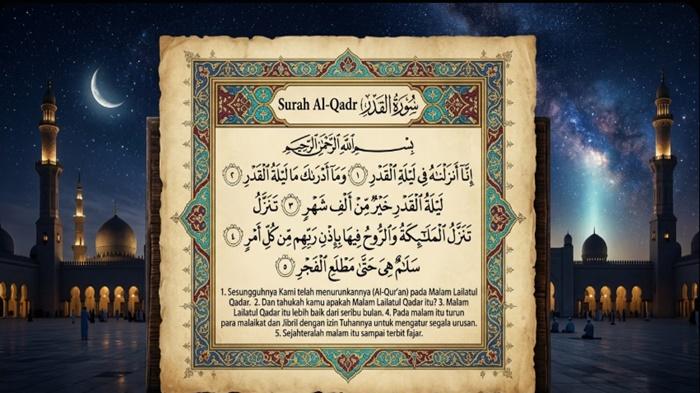 Surah Al-Qadr (سُورَةُ الْقَدْرِ
بِسْمِ اللَّهِ الرَّحْمَٰنِ الرَّحِيمِ
إِنَّا أَنزَلْنَاهُ فِي لَيْلَةِ الْقَدْرِ ١ وَمَا أَدْرَاكَ مَا لَيْلَةُ الْقَدْرِ ٢
لَيْلَةُ الْقَدْرِ خَيْرٌ مِّنْ أَلْفِ شَهْرٍ ٣ تَنَزَّلُ
تَنَزَّلُ الْمَلَائِكَةُ وَالرُّوحُ فِيهَا بِإِذْنِ رَبِّهِم مِّن كُلِّ أَمْرٍ ٤
سَلَامٌ هِيَ حَتَّىٰ مَطْلَعِ الْفَجْرِ ٥
1. Sesungguhnya Kami telah menurunkannya (Al-Qur'an) pada Malam Lailatul
Qadar. 2. Dan tahukah kamu apakah Malam Lailatul Qadar itu? 3. Malam
Lailatul Qadar itu lebih baik dari seribu bulan. 4. Pada malam itu turun
para malaikat dan Jibril dengan izin Tuhannya untuk mengatur segala urusan.
5. Sejahteralah malam itu sampai terbit fajar.